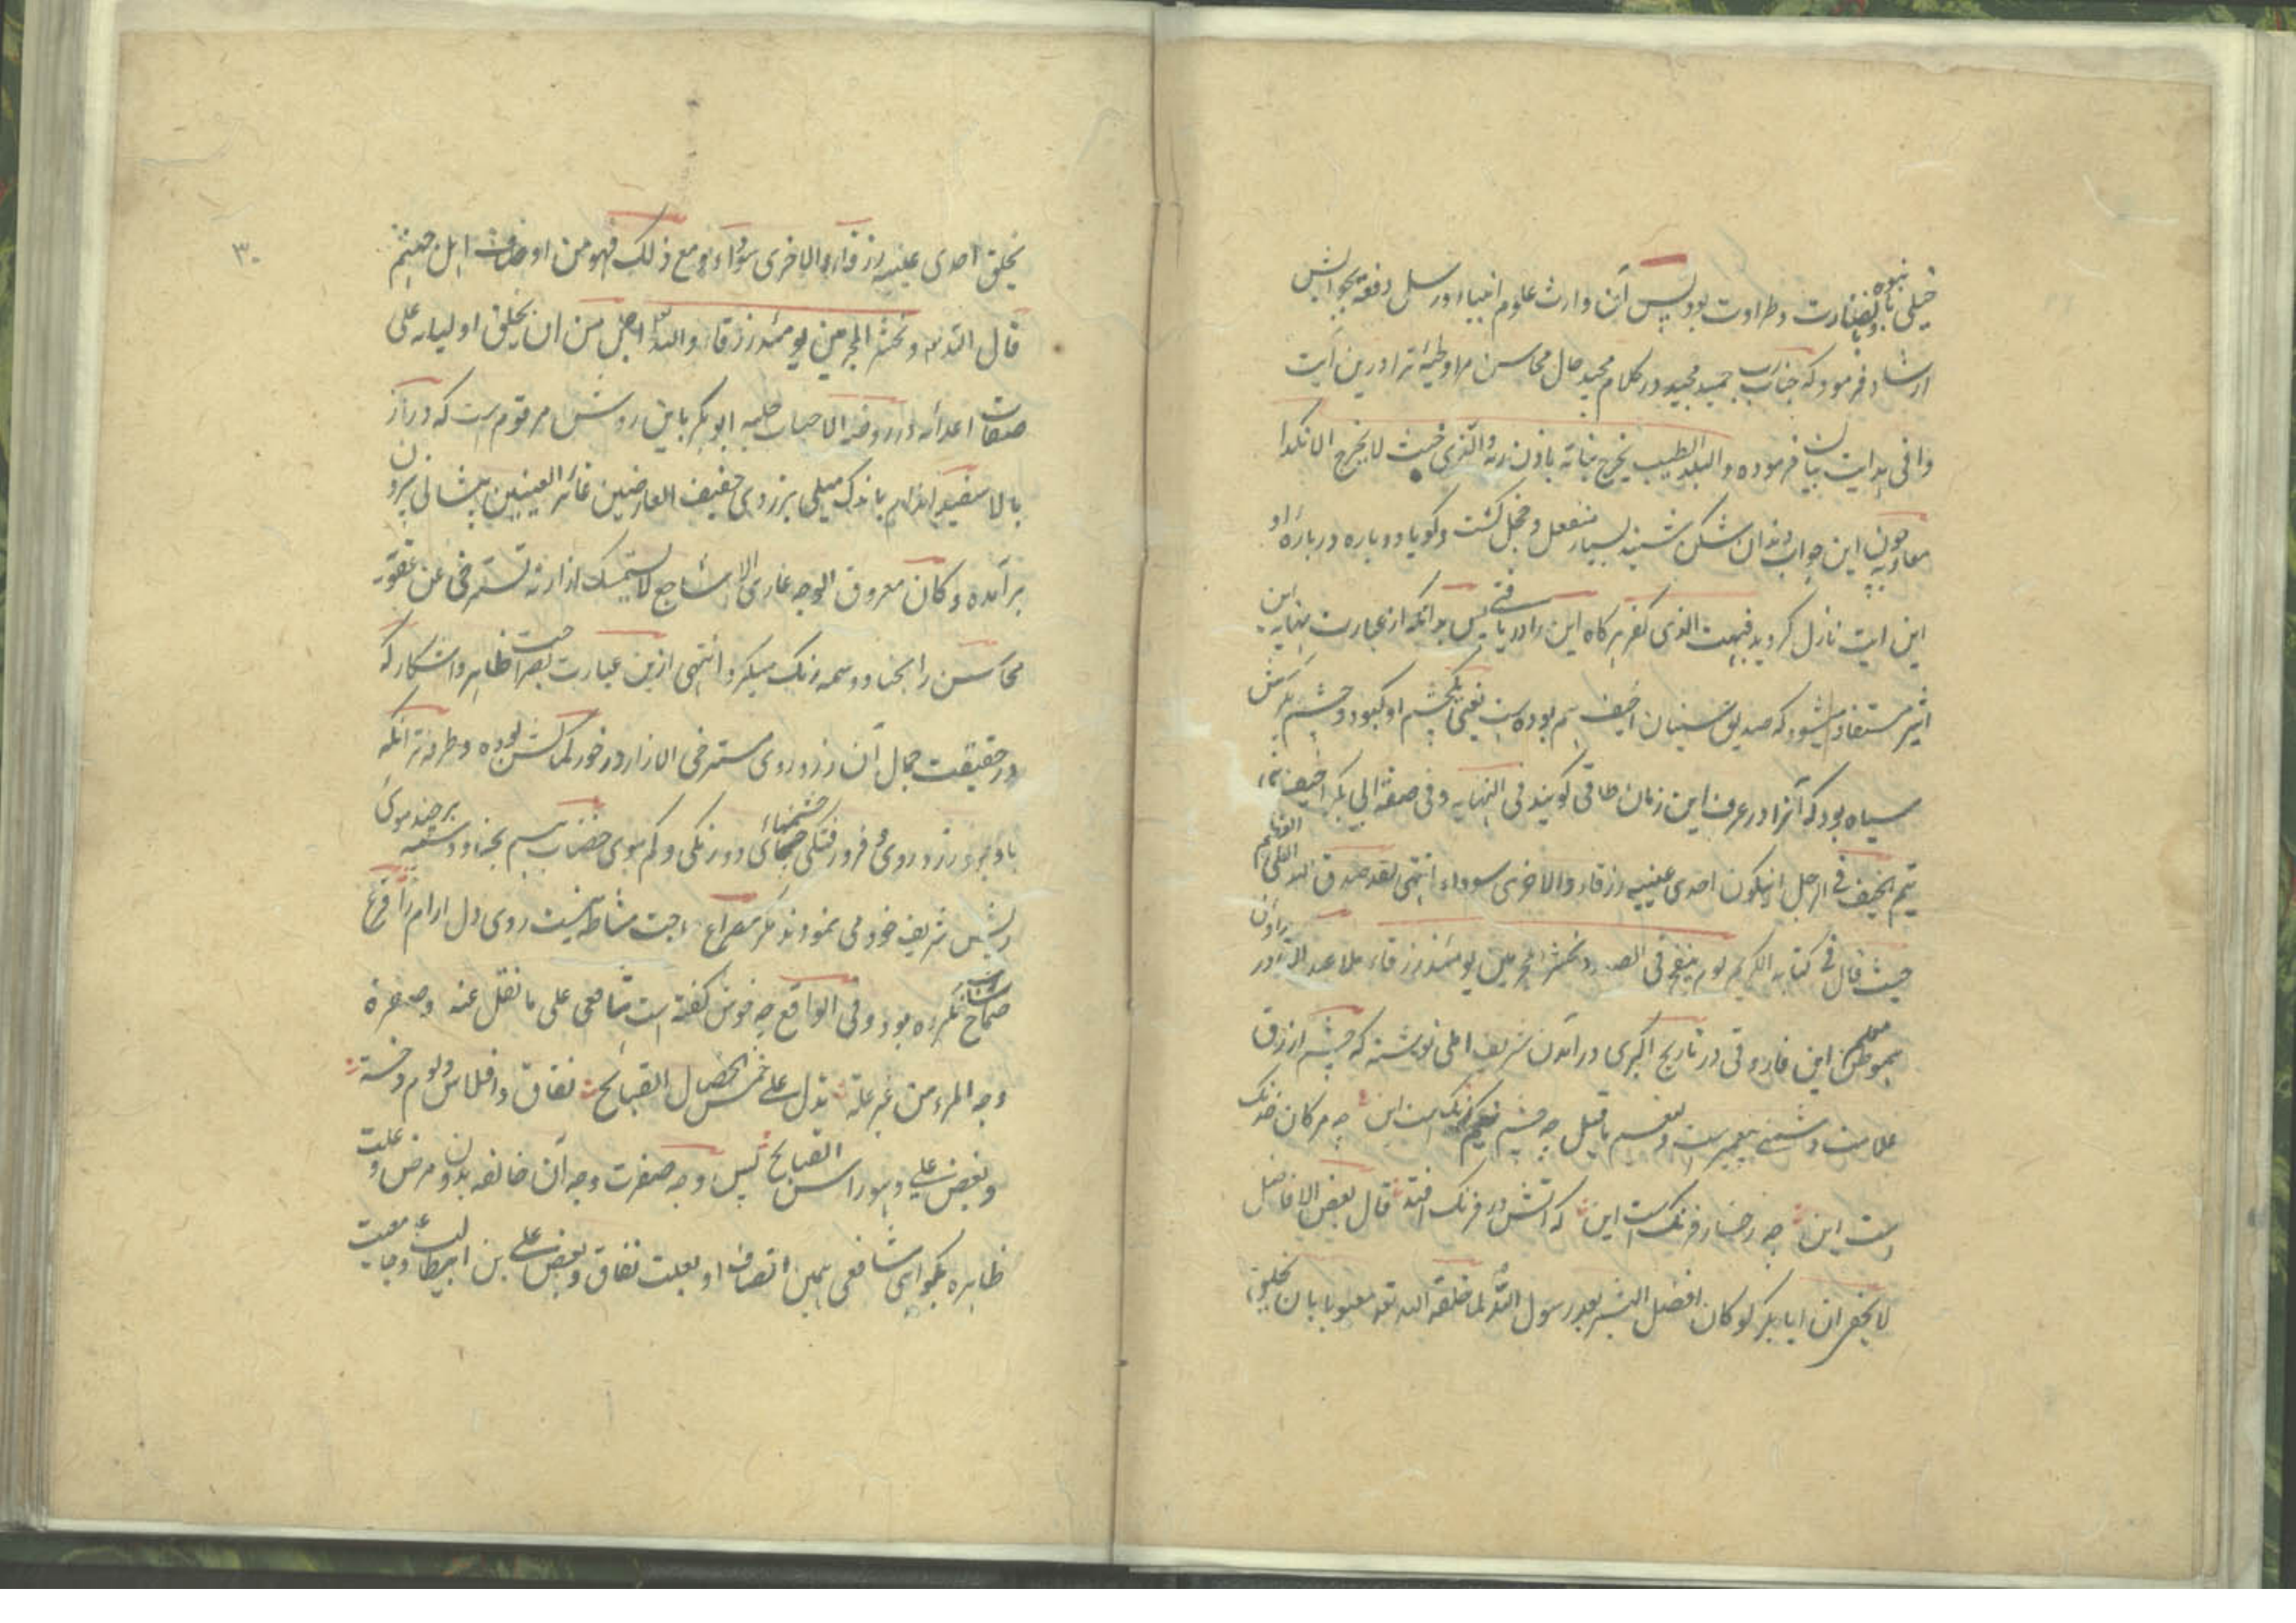 خیلی با نبوه و بانضارت و طراوت بود پس آن وارث علوم انبیاء و رسل دفعة بجوابش
ارشاد فرمود که جناب رب حمید مجید در کلام مجید حال محاسن مرا و لحیهٔ ترا درین آیت
وافی هدایت بیان فرموده والبلد الطیب یخرج نباته باذن ربه والذی خبث لا یخرج الا نکدا
معاویه چون این جواب دندان شکن شنید بسیار منفعل و خجل گشت و گویا دوباره دربارهٔ او
این ایت نازل گردید فبهت الذی کفر هرگاه این را دریافتی پس بدانکه از عبارت نهایه ابن
اثیر مستفاد میشود که صدیق سنیان اخیف هم بوده است یعنی یکچشم او کبود و چشم دیگرش
سیاه بود که آنرا در عرف این زمان طاقی گویند فی النهایه و فی صفة ابی بکر اخیف بنی
تیم الخیف فی الرجل ان یکون احدی عینیه زرقاء والاخری سوداء انتهی لقد صدق الله العلی العظیم
حیث قال فی کتابه الکریم یوم ینفخ فی الصور و نحشر المجرمین یومئذ زرقا ملا عبد القادر
این فاروقی در تاریخ اکبری در آمدن شریف املی نوشته که چشم ازرق
علامت دشمنی پیغمبرست و لنعم ما قیل چه چشم نیمرنگ است این چه مژگان خدنگ
است این چه رخسار فرنگ است این که آتش در فرنگ افتد قال بعض الافاضل
لا یخفی ان ابا بکر لو کان افضل البشر بعد رسول الله لما خلقه الله تعه معیوبا بان یخلق
۳۰
یخلق احدی عینیه زرقاء والاخری سوداء و مع ذلک فهو من اوصاف اهل جهنم
قال الله تعه و نحشر المجرمین یومئذ زرقا والله اجل من ان یخلق اولیائه علی
صفات اعدائه و در روضة الاحباب حلیه ابو بکر باین روش مرقوم است که دراز
بالا سفید اندام باندک میلی بزردی خفیف العارضین غائر العینین پیشانی بیرون
برآمده و کان معروق الوجه عاری الاشاجع لا یستمسک ازاره تسترخی عن حقویه
محاسن را بحنا و وسمه رنگ میکرد انتهی ازین عبارت بصراحت ظاهر و اشکار که
در حقیقت جمال آن زرد روی مسترخی الازار در خور تماشا بوده و طرفه تر آنکه
باوجود زرد روی و فرو رفتگی چشمهای دو رنگی و کم موی خضاب هم بحنا و وسمه برچند موی
ریش شریف خود می نمودند مگر مصراع حاجت مشاطه نیست روی دل ارام را قرع
صماخ شان نکرده بود و فی الواقع چه خوش گفته است شافعی علی ما نقل عنه و صفرة
وجه المرء من غیر علة تدل علی خمس الخصال القبائح نفاق و افلاس و لوم و خسة
و بغض علی و هو راس القبائح پس وجه صفرت وجه آن خالفه بدون مرض و علت
ظاهره بگواهی شافعی همین اتصاف او بعلت نفاق و بغض علی بن ابیطالب